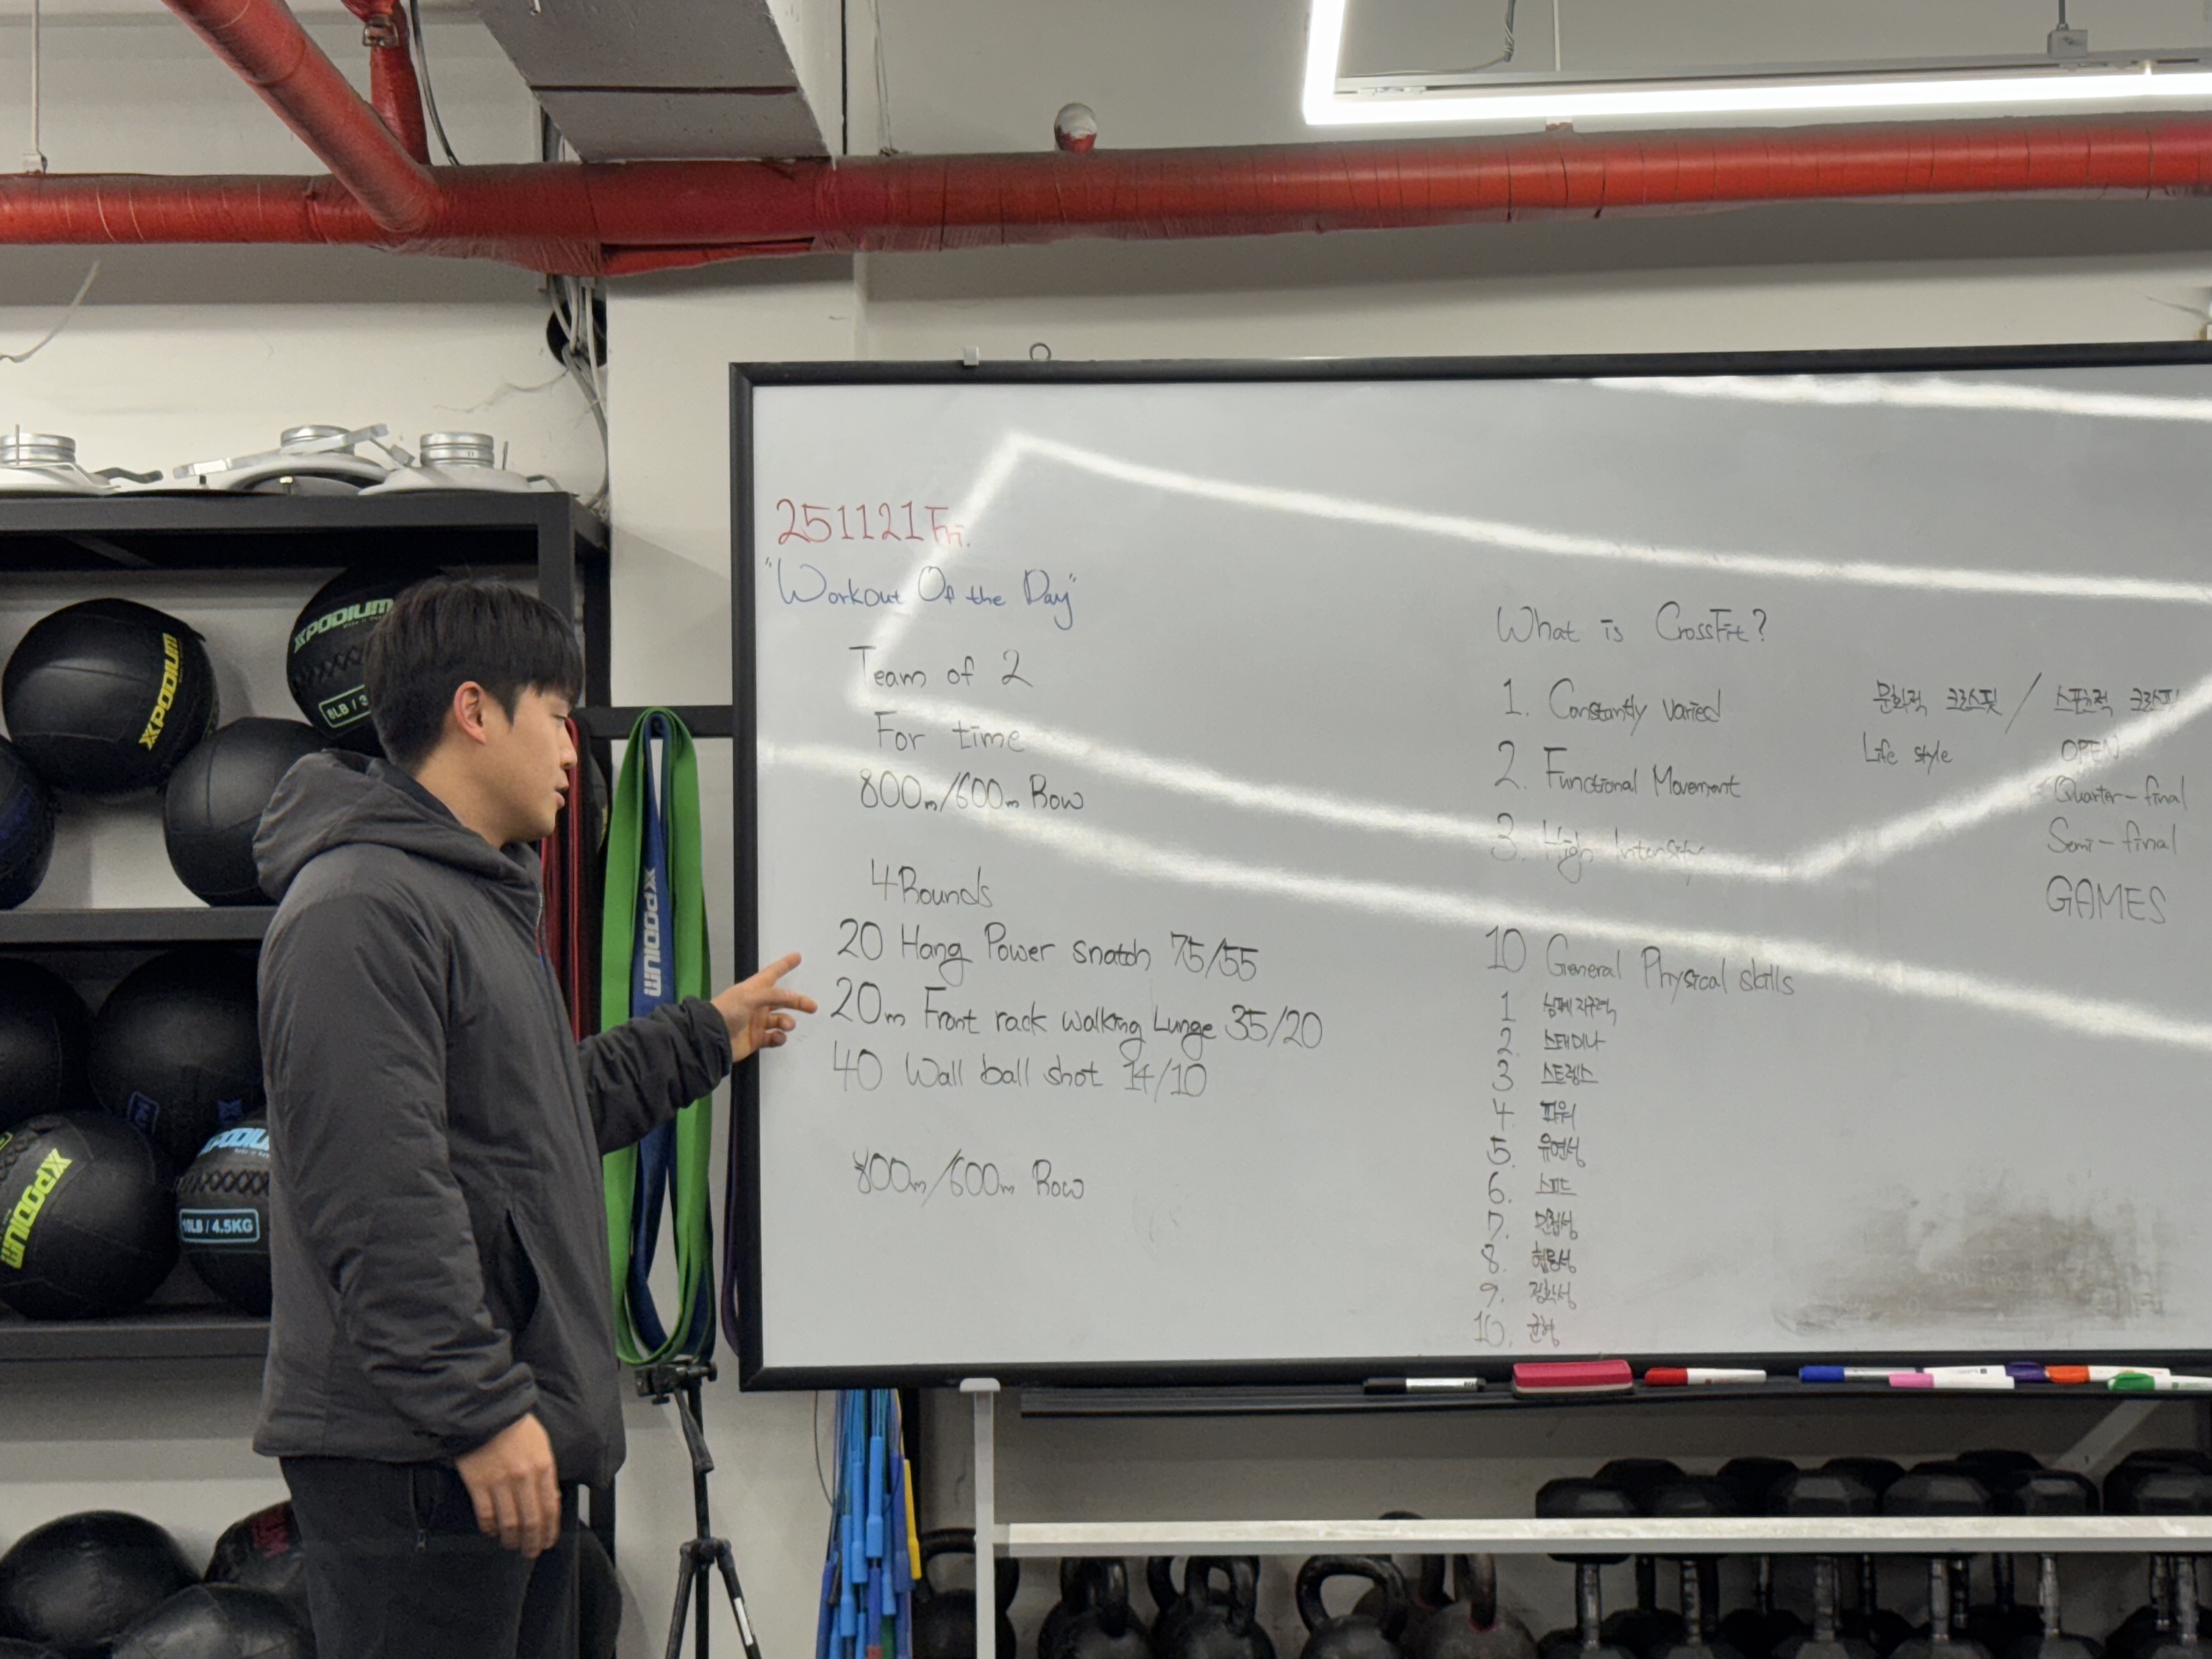 251121 Fri.
"Workout Of the Day"
Team of 2
For time
800m/600m Row
4 Rounds
20 Hang Power snatch 75/55
20m Front rack walking Lunge 35/20
40 Wall ball shot 14/10
800m/600m Row
What is CrossFit?
1. Constantly varied
2. Functional Movement
3. High Intensity
문화적 크로스핏 / 스포츠적 크로스핏
Life style
OPEN
Quarter-final
Semi-final
GAMES
10 General Physical skills
1 심폐지구력
2. 스태미나
3 스트렝스
4 파워
5. 유연성
6. 스피드
7. 민첩성
8. 협응성
9. 정확성
10. 균형
XPODIUM
XPODIUM
6LB / 3
XPODIUM
XPODIUM
10LB / 4.5KG
XPODIUM